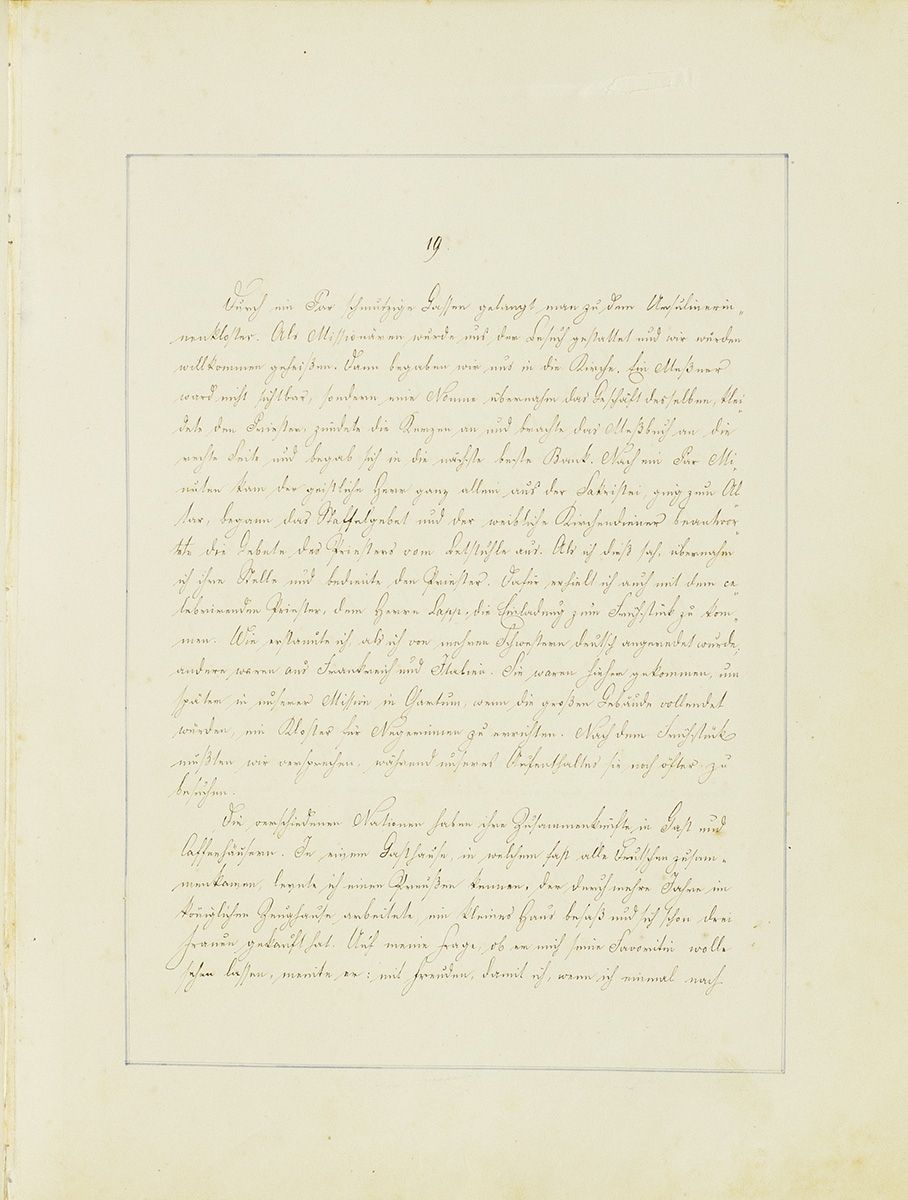 19.
Durch ein Par schmutzige Gassen gelangt man zu dem Ursulinerin„
nenkloster. Als Missionären wurde uns der Besuch gestattet und wir wurden
willkommen geheißen. Dann begaben wir uns in die Kirche. Ein Meßner
ward nicht sichtbar, sondern eine Nonne übernahm das Geschäft desselben, klei„
dete den Priester, zündete die Kerzen an und brachte das Meßbuch an die
rechte Seite und begab sich in die nächste beste Bank. Nach ein Par Mi„
nuten kam der geistliche Herr ganz allein aus der Sakristei, ging zum Al„
tar, begann das Staffelgebet und der weibliche Kirchendiener beantwor„
tete die Gebete des Priesters vom Betstuhle aus. Als ich dieß sah, übernahm
ich ihre Stelle und bediente den Priester. Dafür erhielt ich auch mit dem ce„
lebrirenden Priester, dem Herrn Lapp, die Einladung zum Frühstück zu kom„
men. Wie erstaunte ich, als ich von mehren Schwestern deutsch angeredet wurde;
andere waren aus Frankreich und Italien. Sie waren hieher gekommen, um
später in unserer Mission in Chartum, wenn die großen Gebäude vollendet
würden, ein Kloster für Negerinnen zu errichten. Nach dem Frühstück
mußten wir versprechen, während unseres Aufenthaltes sie noch öfter zu
besuchen.
Die verschiedenen Nationen haben ihre Zusammenkünfte in Gast und
Caffeehäusern. In einem Gasthause, in welchem fast alle Deutschen zusam„
menkamen, lernte ich einen Preußen kennen, der durch mehre Jahre im
königlichen Zeughause arbeitete, ein kleines Haus besaß und sich schon drei
Frauen gekauft hat. Auf meine Frage, ob er mich seine Favoritin wolle
sehen lassen, meinte er: mit Freuden, damit ich, wenn ich einmal nach